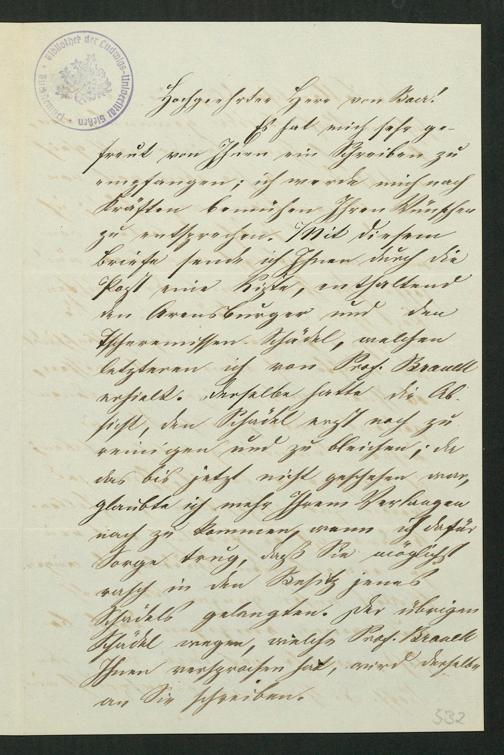 Bibliothek der Ludwigs-Universität Gießen
Hochgeehrter Herr von Baer!
Es hat mich sehr ge-
freut von Ihnen ein Schreiben zu
empfangen; ich werde mich nach
Kräften bemühen Ihren Wünschen
zu entsprechen. Mit diesem
Briefe sende ich Ihnen durch die
Post eine Kiste, enthaltend
den Arensburger und den
Tscheremissen Schädel, welchen
letzteren ich von Prof. Brandt
erhielt. Derselbe hatte die Ab
sicht, den Schädel erst noch zu
reinigen und zu bleichen; da
das bis jetzt nicht geschehen war,
glaubte ich mehr Ihrem Verlangen
nach zu kommen, wenn ich dafür
Sorge trug, daß Sie möglichst
rasch in den Besitz jenes
Schädels gelangten. Der übrigen
Schädel wegen, welche Prof. Brandt
Ihnen versprochen hat, wird derselbe
an Sie schreiben.
532